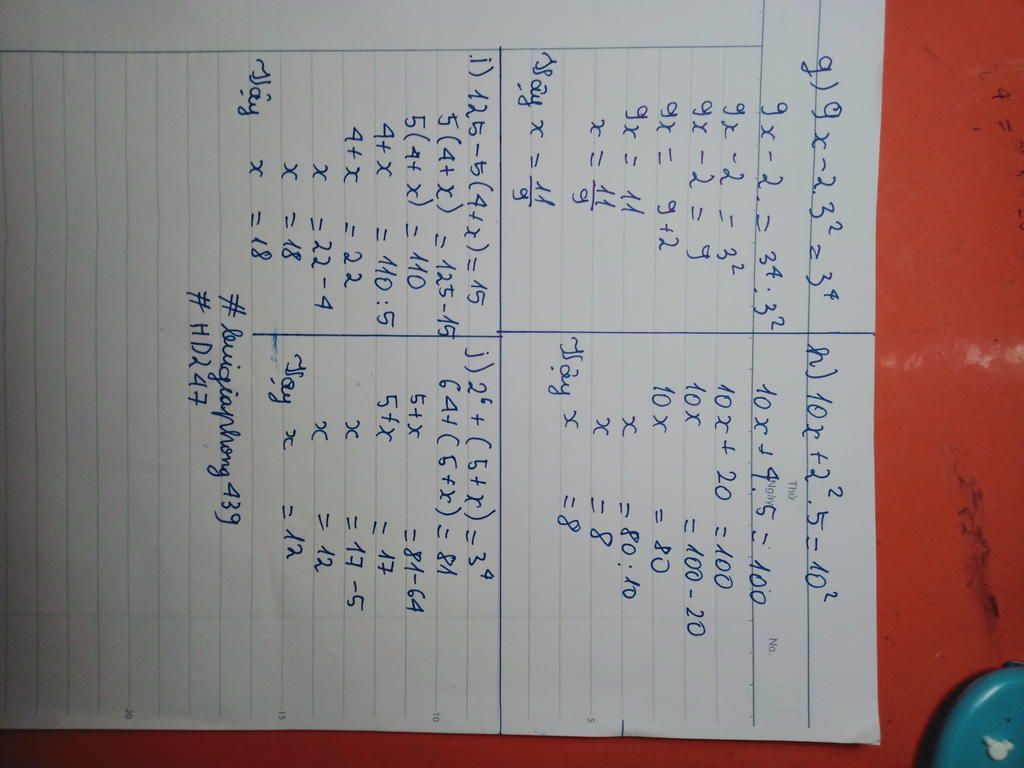 Thứ
Ngày
No.
g) 9x - 2.3² = 3⁴
9x - 2 = 3⁴ : 3²
9x - 2 = 3²
9x - 2 = 9
9x = 9+2
9x = 11
x = 11/9
Vậy x = 11/9
h) 10x + 2².5 = 10²
10x + 4.5 = 100
10x + 20 = 100
10x = 100 - 20
10x = 80
x = 80 : 10
x = 8
Vậy x = 8
i) 125 - 5(4+x) = 15
5(4+x) = 125-15
5(4+x) = 110
4+x = 110:5
4+x = 22
x = 22-4
x = 18
Vậy x = 18
j) 2⁶ + (5+x) = 3⁴
64+(5+x) = 81
5+x = 81-64
5+x = 17
x = 17-5
x = 12
Vậy x = 12
#HD247
5
10
15
20